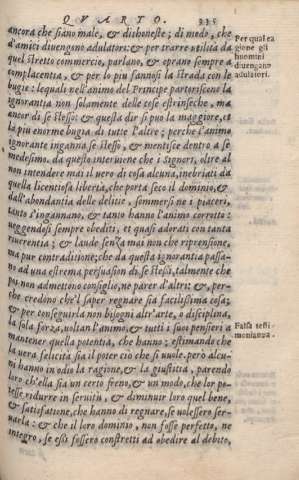 QVARTO. 235
ancora che siano male, & disboneste; di modo, che
d'amici diuengono adulatori: & per trarre utilità da
quel stretto commercio, parlano, & oprano sempre a
complacentia, & per lo piu fannosi la strada con le
bugie: lequali nell'animo del Principe partoriscono la
ignorantia non solamente delle cose estrinseche, ma
ancor di se stesso: & questa dir si può la maggiore, et
la piu enorme bugia di tutte l'altre; perche l'animo
ignorante inganna se stesso, & mentisce dentro a se
medesimo. da questo interuiene che i Signori, oltre al
non intendere mai il uero di cosa alcuna, inebriati da
quella licentiosa libertà, che porta seco il dominio, &
dall'abondantia delle delitie, sommersi ne i piaceri,
tanto s'ingannano, & tanto hanno l'animo corrotto:
ueggendosi sempre obediti, et quasi adorati con tanta
riuerentia; & laude senza mai non che riprensione,
ma pur contraditione; che da questa ignorantia passa-
no ad una estrema persuasion di se stessi, talmente che
poi non admettono consiglio, ne parer d'altri: &, per-
che credono che'l saper regnare sia facilissima cosa;
& per conseguirla non bisogni altr'arte, o disciplina,
la sola forza, uoltan l'animo, & tutti i suoi pensieri a
mantener quella potentia, che hanno; estimando che
la uera felicità sia il poter ciò che si uuole. però alcu-
ni hanno in odio la ragione, & la giustitia, parendo
loro ch'ella sia un certo freno, & un modo, che lor po-
tesse ridurre in seruitù, & diminuir loro quel bene,
& satisfatione, che hanno di regnare, se uolessero ser-
uarla: & che il loro dominio, non fosse perfetto, ne
integro, se essi fossero constretti ad obedire al debito,
Per qual ca
gione gli
huomini
diuengano
adulatori.
Falsa testi
monianza.